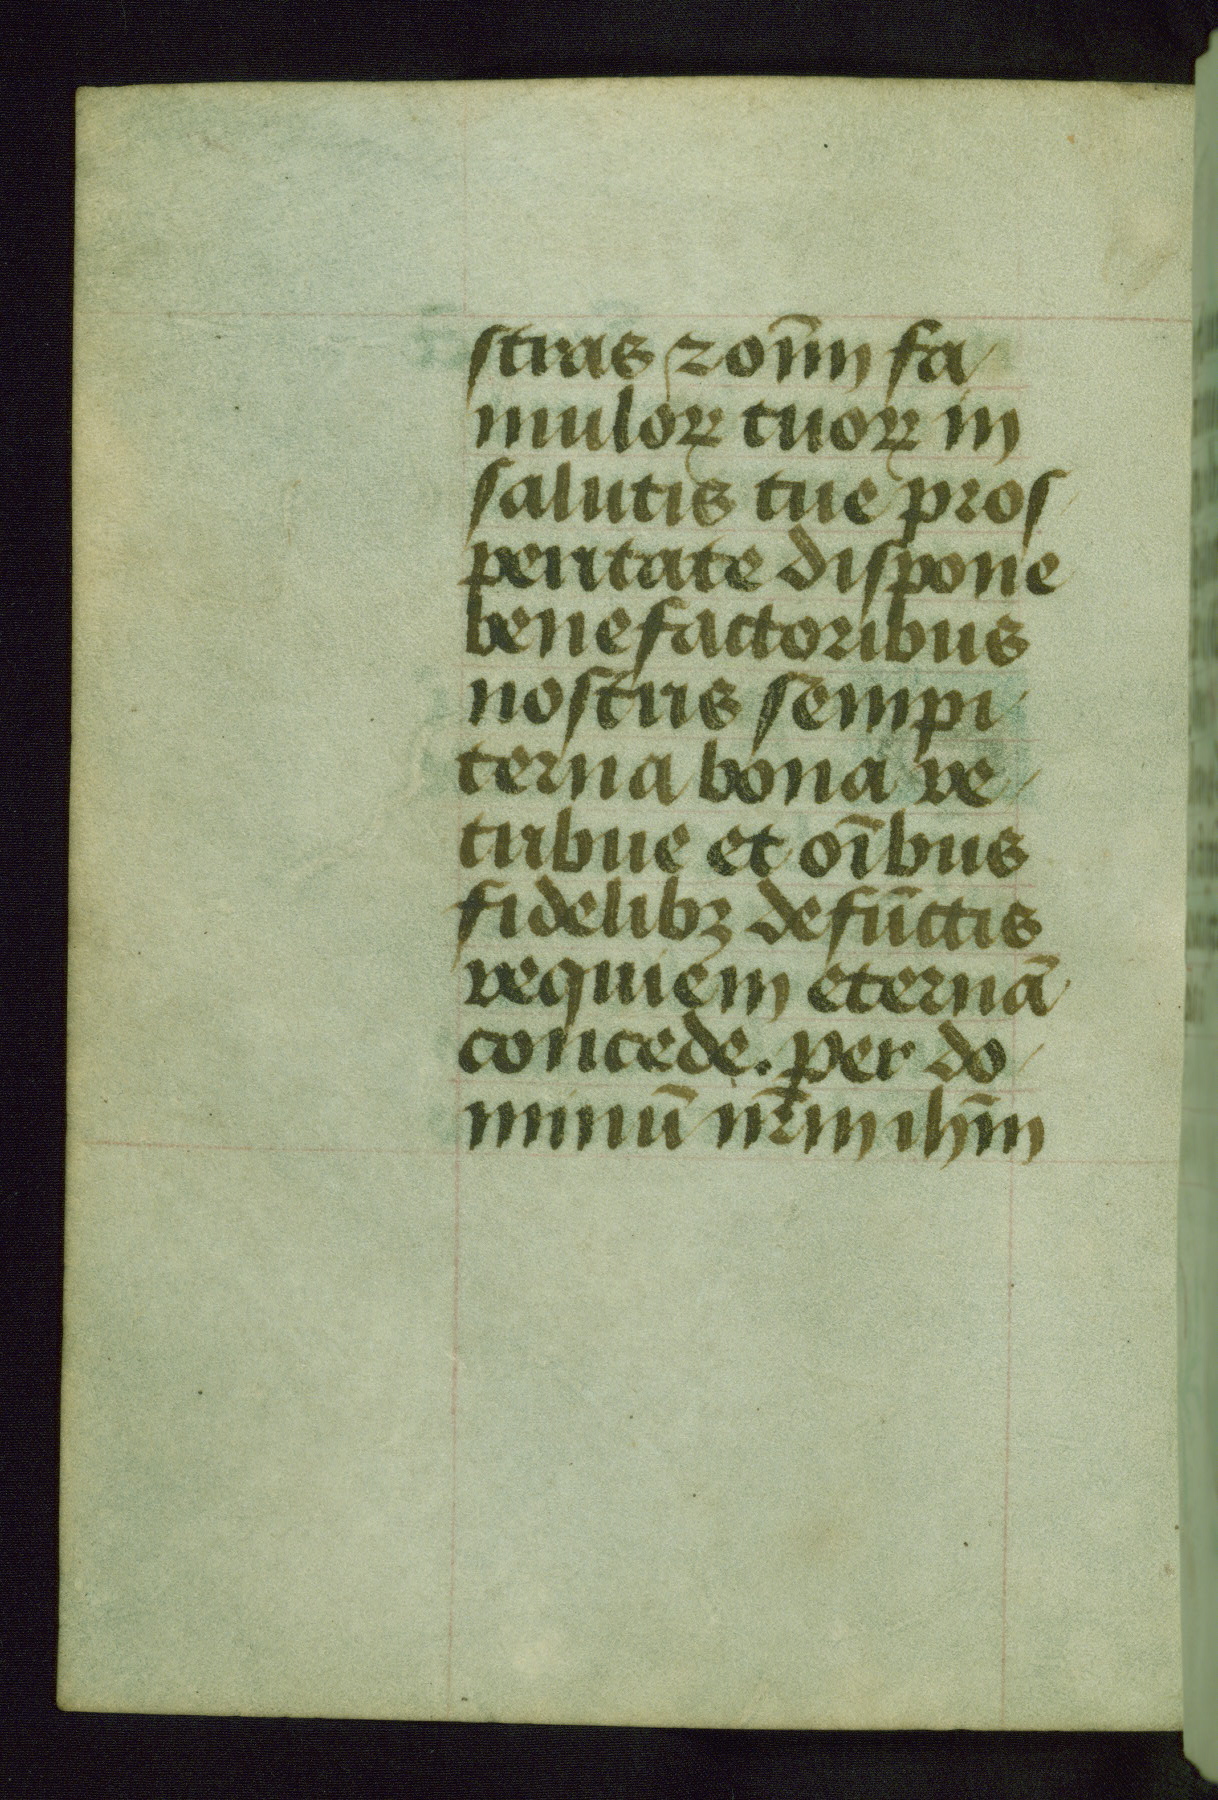 stras ⁊ oīm fa
muloꝝ tuoꝝ in
salutis tue pros
peritate dispone
benefactoribus
nostris sempi
terna bona re
tribue et oībus
fidelibꝫ defūctis
requiem eternā
concede. per do
minū nr̄m ihm̄